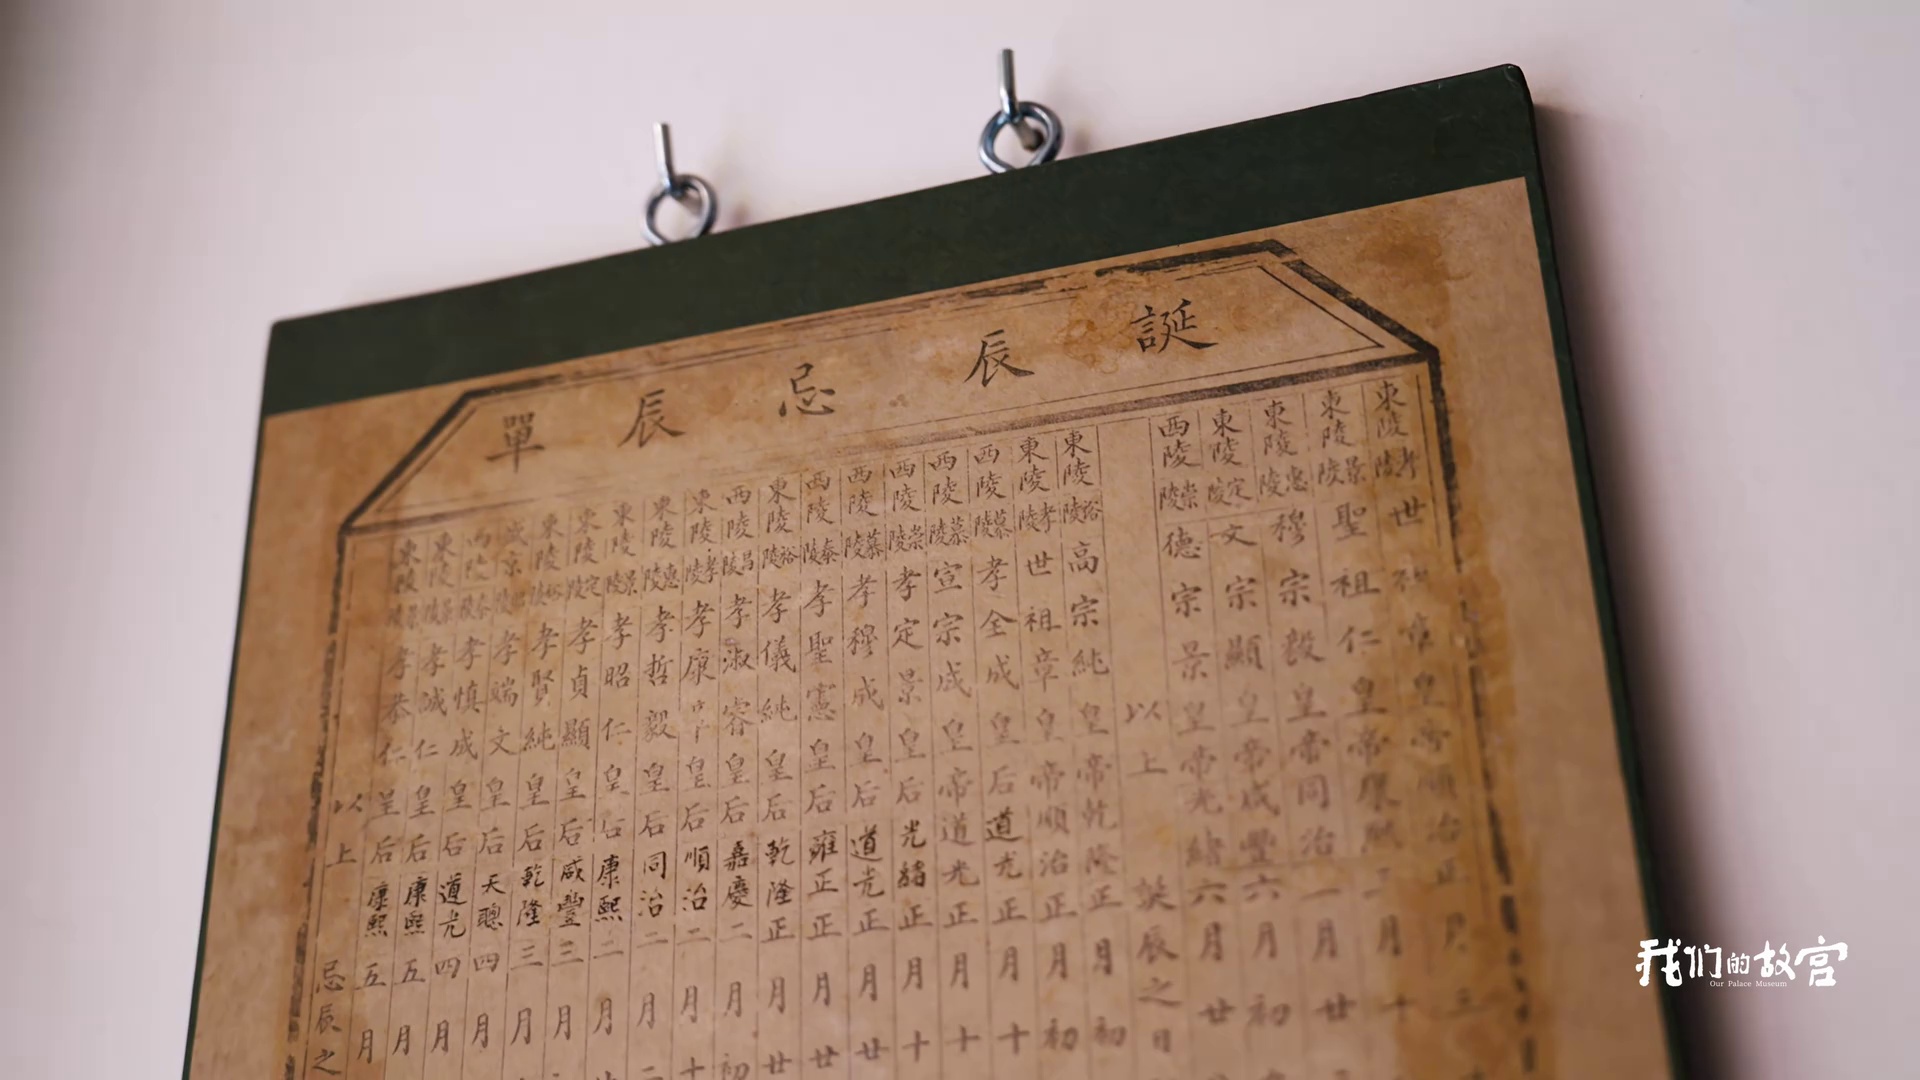 誕辰忌辰單
東陵孝陵世祖章皇帝順治正月三
東陵景陵聖祖仁皇帝康熙三月十
東陵惠陵穆宗毅皇帝同治月廿
東陵定陵文宗顯皇帝咸豐六月初
西陵崇陵德宗景皇帝光緒六月廿
以上誕辰之日
東陵裕陵高宗純皇帝乾隆正月初
東陵孝陵世祖章皇帝順治正月初
西陵慕陵孝全成皇后道光正月十
西陵慕陵宣宗成皇帝道光正月十
西陵崇陵孝定景皇后光緒正月十
西陵慕陵孝穆成皇后道光正月廿
西陵泰陵孝聖憲皇后雍正正月廿
東陵裕陵孝儀純皇后乾隆正月廿
西陵昌陵孝淑睿皇后嘉慶二月初
東陵孝陵孝康章皇后順治二月十
東陵惠陵孝哲毅皇后同治二月二
東陵景陵孝昭仁皇后康熙二月
東陵定陵孝貞顯皇后咸豐三月
東陵裕陵孝賢純皇后乾隆三月
盛京昭陵孝端文皇后天聰四月
西陵泰陵孝慎成皇后道光四月
東陵景陵孝誠仁皇后康熙五月
東陵景陵孝恭仁皇后康熙五月
以上忌辰之
我们的故宫
Our Palace Museum